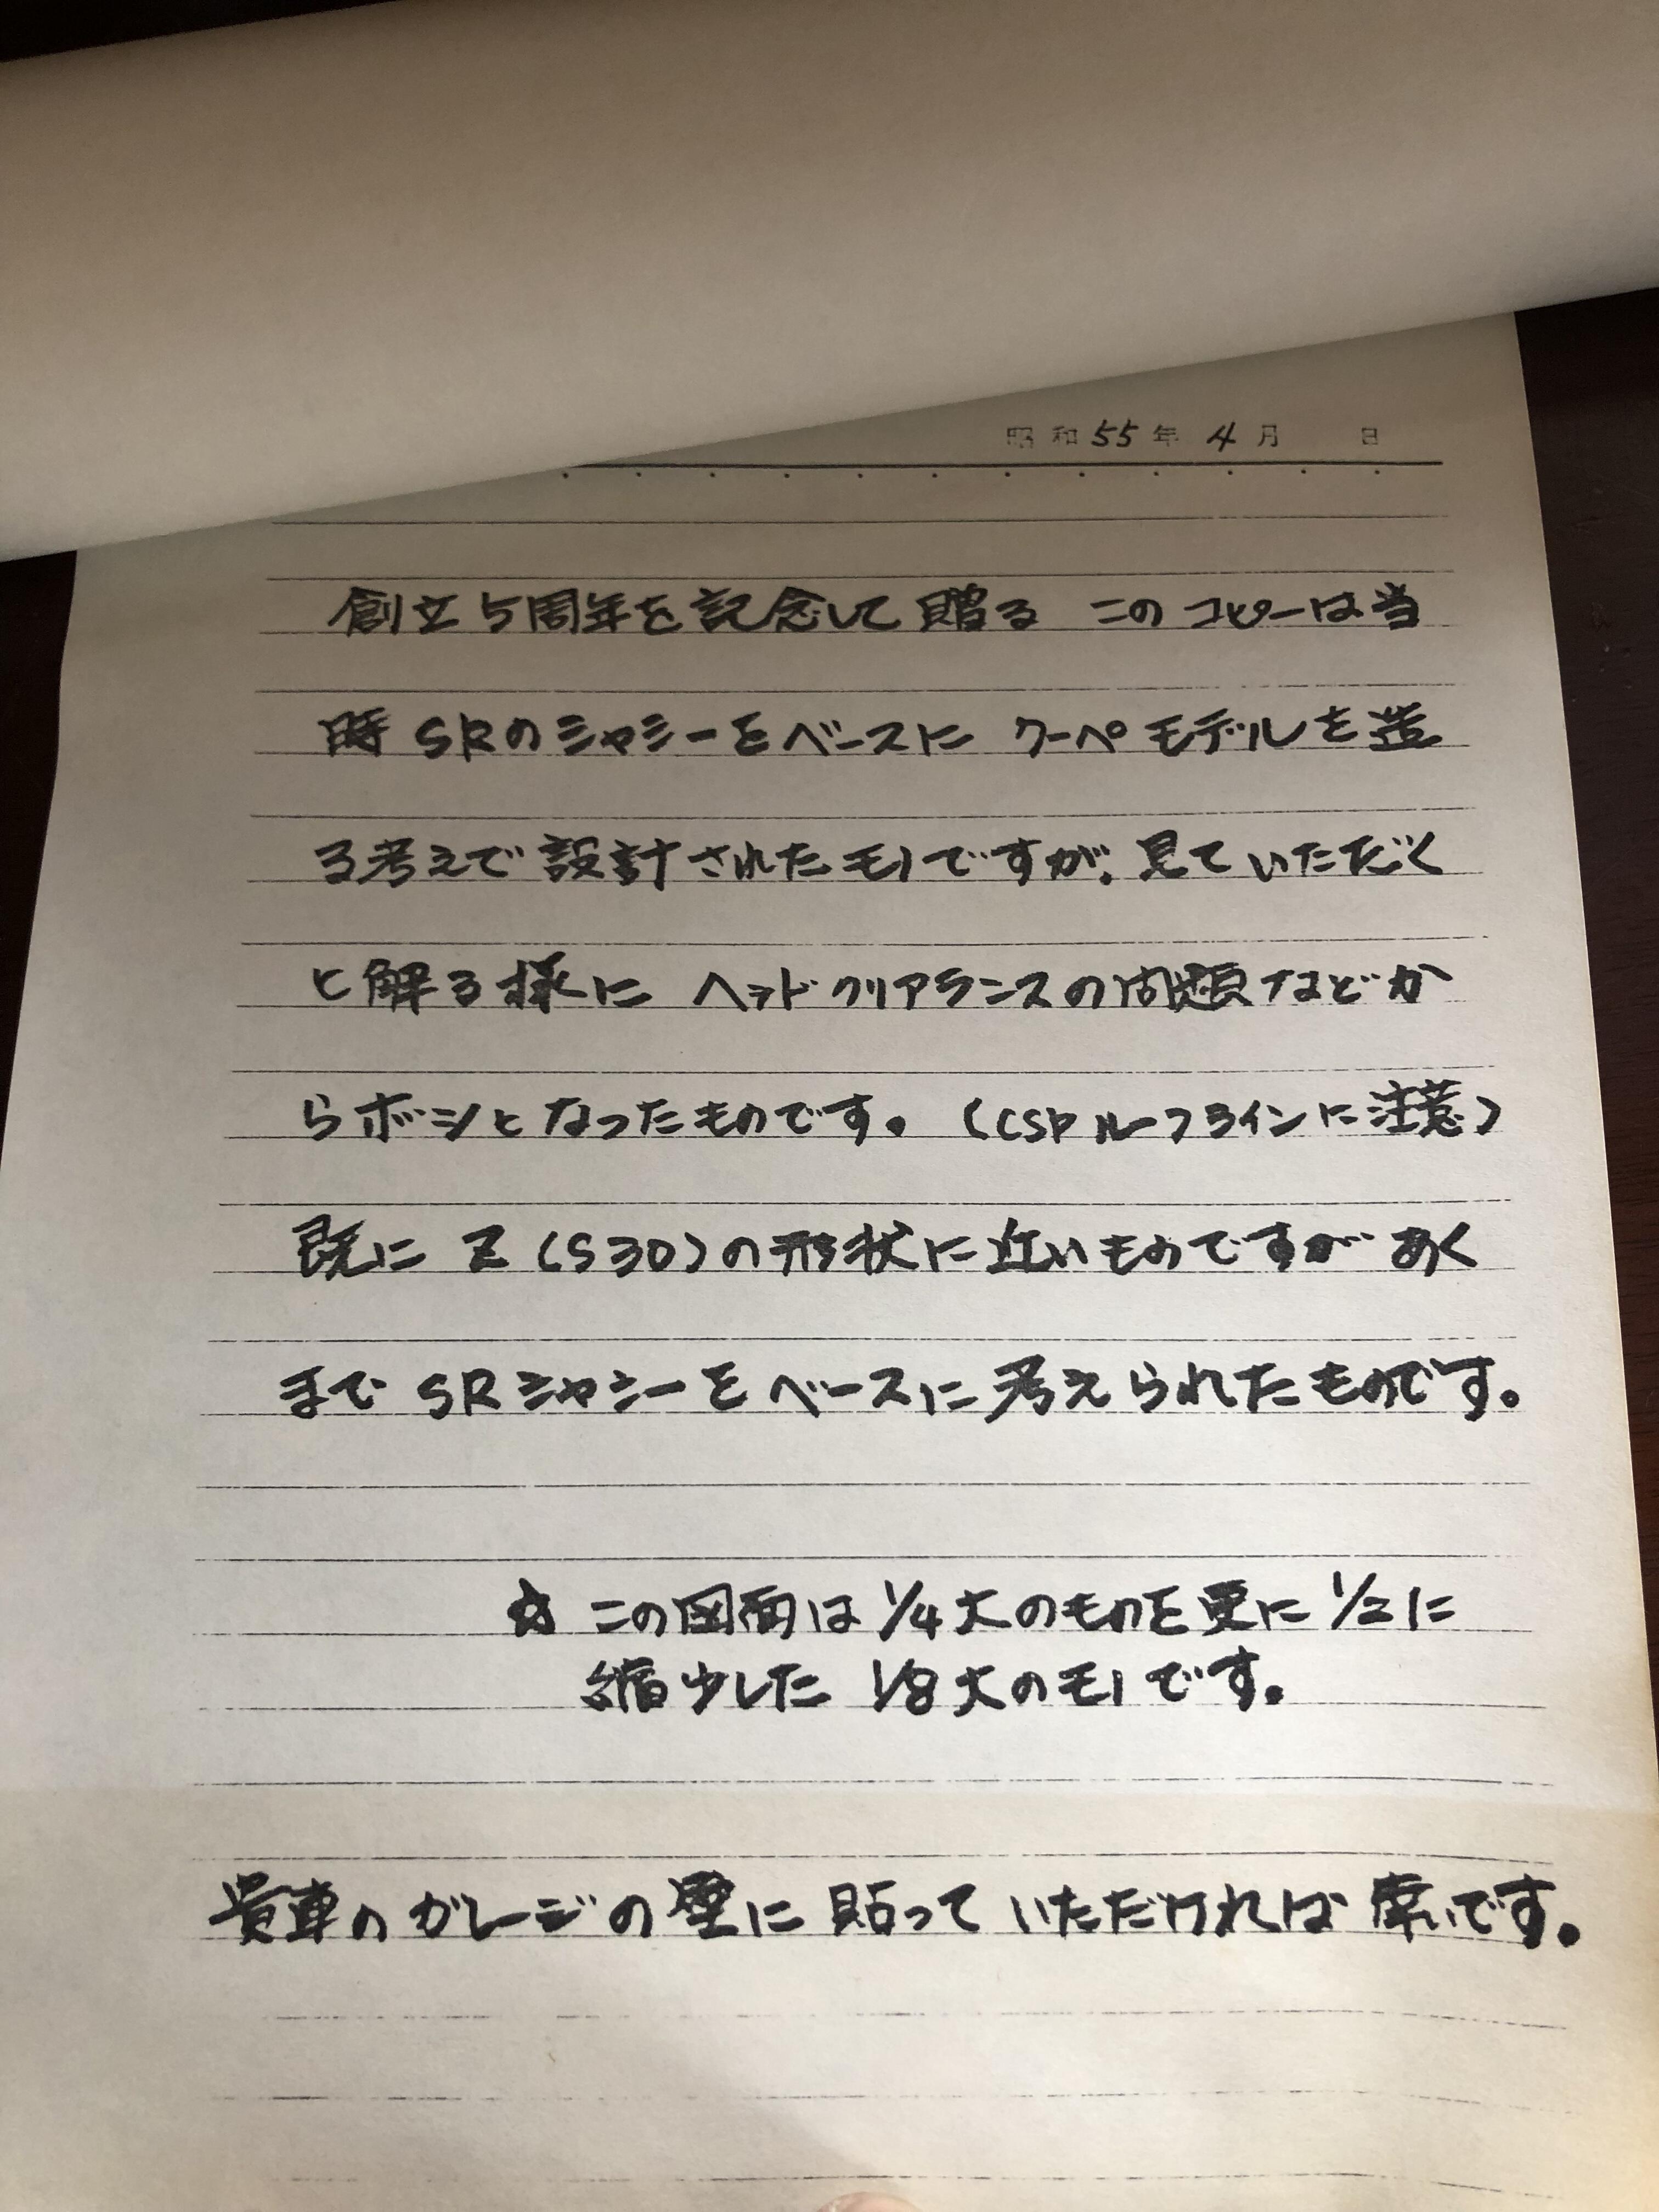 昭和55年 4月 日
創立5周年を記念して贈る このコピーは当
時 SRのシャシーをベースに クーペモデルを造
る考えで設計されたモノですが、見ていただく
と解る様に ヘッドクリアランスの問題などか
らボツとなったものです。(CSPルーフラインに注意)
既に Z(S30)の形状に近いものですが あく
まで SRシャシーをベースに考えられたものです。
☆ この図面は 1/4大のものを更に 1/2に
縮少した 1/8大のモノです。
貴車のガレージの壁に貼っていただければ幸いです。